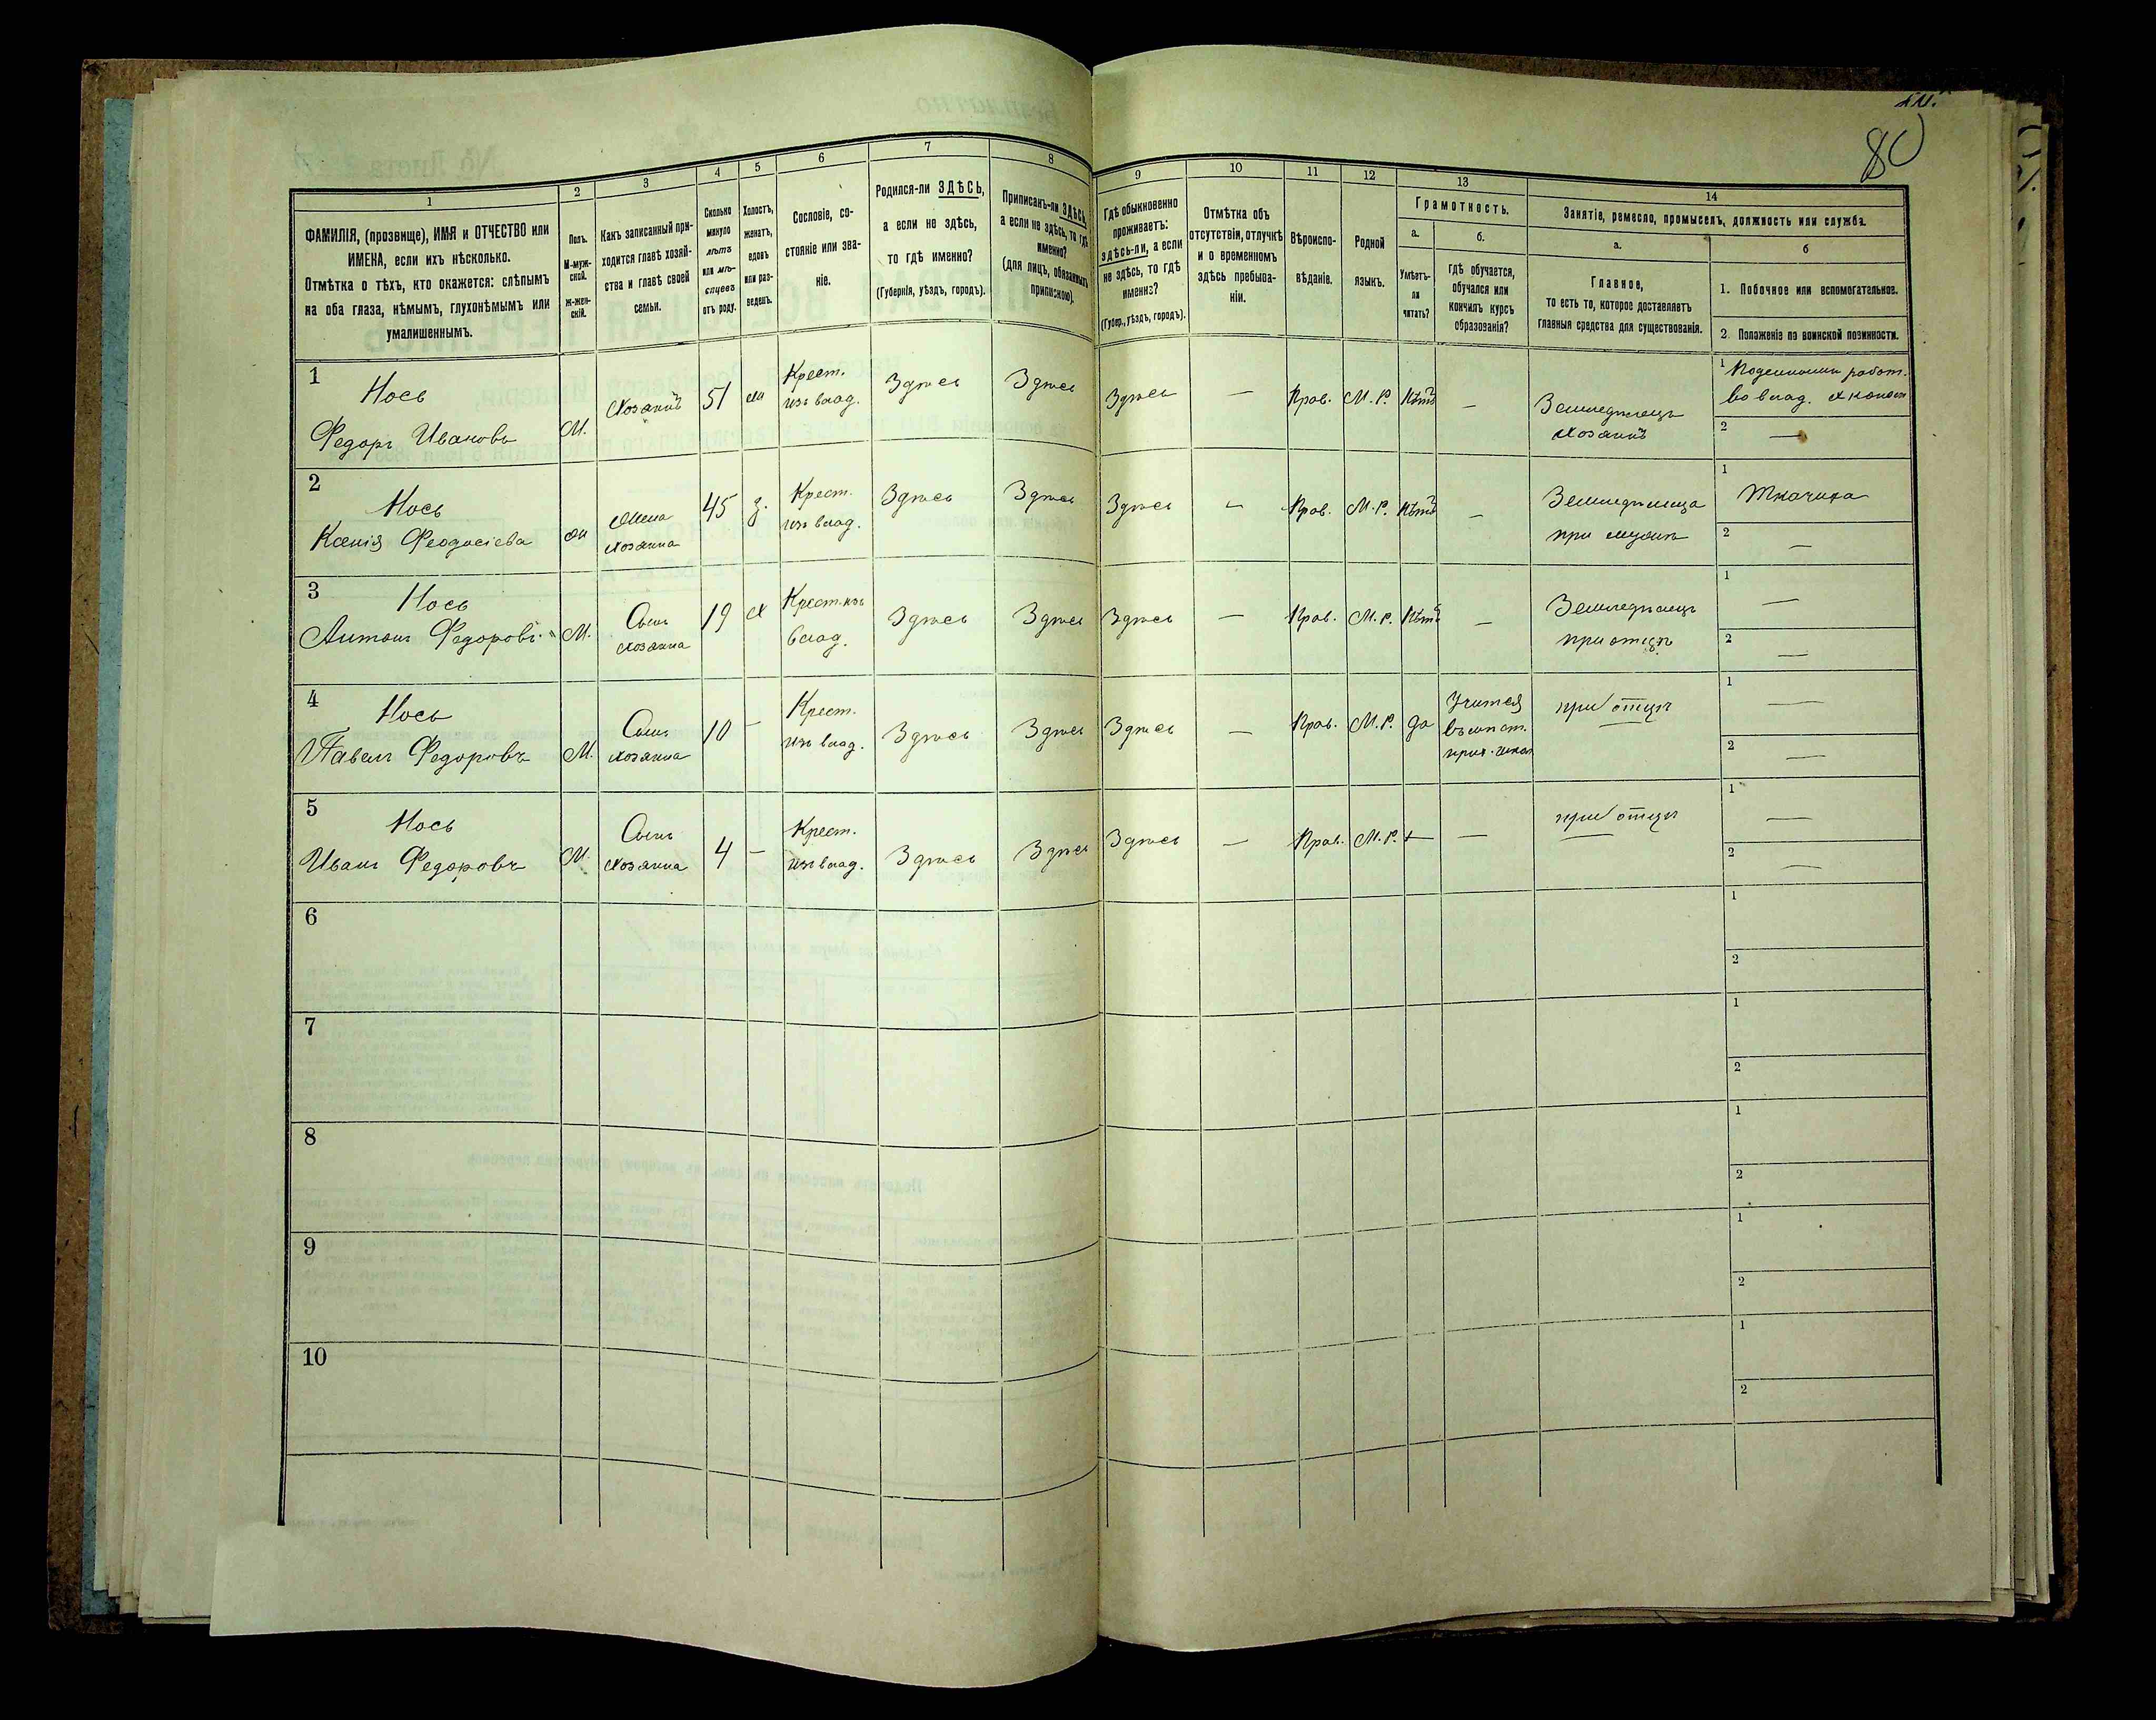 80
1
2
3
4
5
6
7
8
9
10
11
12
13
14
ФАМИЛІЯ, (прозвище), ИМЯ и ОТЧЕСТВО или
ИМЕНА, если ихъ нѣсколько.
Отмѣтка о тѣхъ, кто окажется: слѣпымъ
на оба глаза, нѣмымъ, глухонѣмымъ или
умалишеннымъ.
Полъ.
М-муж-
ской.
Ж-жен-
скій.
Какъ записанный при-
ходится главѣ хозяй-
ства и главѣ своей
семьи.
Сколько
минуло
лѣтъ
или мѣ-
сяцевъ
отъ роду.
Холостъ,
женатъ,
вдовъ
или раз-
веденъ.
Сословіе, со-
стояніе или зва-
ніе.
Родился-ли ЗДѢСЬ,
а если не здѣсь,
то гдѣ именно?
(Губернія, уѣздъ, городъ).
Приписанъ-ли ЗДѢСЬ,
а если не здѣсь, то гдѣ
именно?
(для лицъ, обязанныхъ
припискою).
Гдѣ обыкновенно
проживаетъ:
здѣсь-ли, а если
не здѣсь, то гдѣ
именно?
(Губер., уѣздъ, городъ).
Отмѣтка объ
отсутствіи, отлучкѣ
и о временномъ
здѣсь пребыва-
ніи.
Вѣроиспо-
вѣданіе.
Родной
языкъ.
Грамотность.
а.
Умѣетъ-
ли
читать?
б.
гдѣ обучается,
обучался или
кончилъ курсъ
образованія?
Занятіе, ремесло, промыселъ, должность или служба.
а.
Главное,
то есть то, которое доставляетъ
главныя средства для существованія.
б
1. Побочное или вспомогательное.
2. Положеніе по воинской повинности.
1
Носъ
Федоръ Ивановъ
М.
Хозяинъ
51
жн
Крест.
изъ влад.
Здѣсь
Здѣсь
Здѣсь
—
Прав.
М. Р.
Нѣтъ
—
Земледѣлецъ
хозяинъ
1 Поденный работ.
во влад.
2 —
2
Носъ
Ксенія Феодосіева
жн
Жена
хозяина
45
з.
Крест.
изъ влад.
Здѣсь
Здѣсь
Здѣсь
—
Прав.
М. Р.
Нѣтъ
—
Земледѣлица
при мужѣ
1 Ткачиха
2 —
3
Носъ
Антонъ Федоровъ
М.
Сынъ
хозяина
19
х
Крест. изъ
влад.
Здѣсь
Здѣсь
Здѣсь
—
Прав.
М. Р.
Нѣтъ
—
Земледѣлецъ
при отцѣ
1 —
2 —
4
Носъ
Павелъ Федоровъ
М.
Сынъ
хозяина
10
—
Крест.
изъ влад.
Здѣсь
Здѣсь
Здѣсь
—
Прав.
М. Р.
да
Учится
въ мѣст.
прих. школ
при отцѣ
1 —
2 —
5
Носъ
Иванъ Федоровъ
М.
Сынъ
хозяина
4
—
Крест.
изъ влад.
Здѣсь
Здѣсь
Здѣсь
—
Прав.
М. Р.
—
—
при отцѣ
1 —
2 —
6
1
2
7
1
2
8
1
2
9
1
2
10
1
2